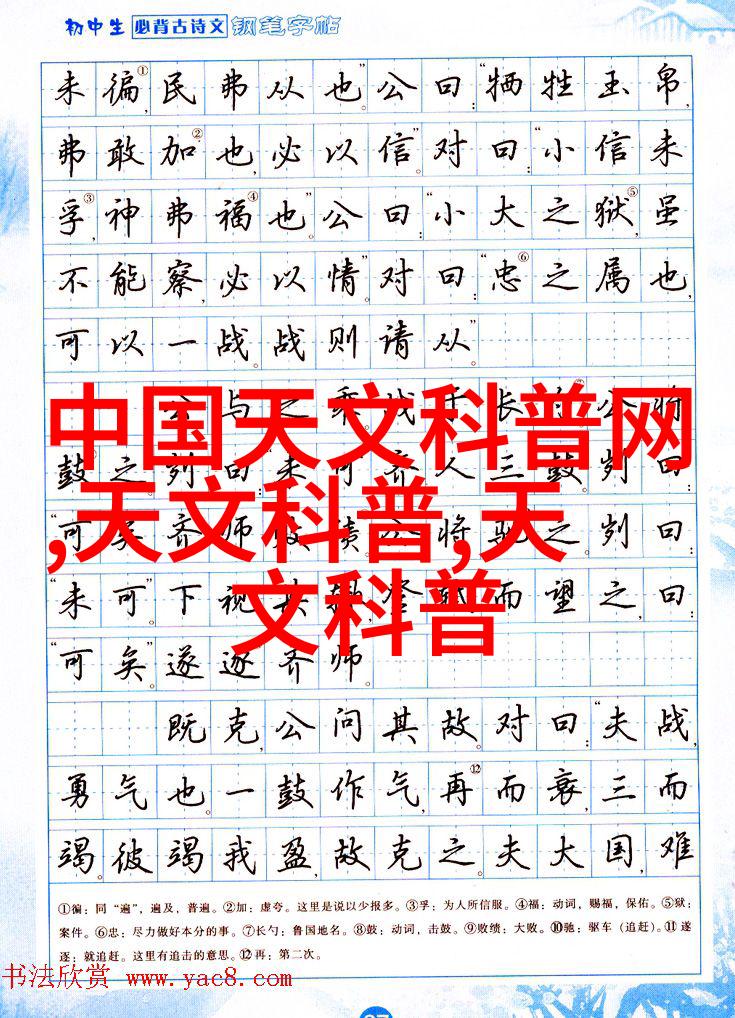 初中生 必背古诗文 钢笔字帖
未徧①,民弗从也”。公曰:“牺牲玉帛,
弗敢加②也,必以信”。对曰:“小信未
孚③,神弗福④也”。公曰:“小大之狱⑤,虽
不能察,必以情”。对曰:“忠⑥之属也,
可以一战。战则请从”。
公与之乘。战于长勺。公将
鼓。之。刿曰:“未可”。齐人三鼓。刿曰:
“可矣”。齐师败绩。公将驰之。刿曰:
“未可”。下视其辙,登轼而望之,曰:
“可矣”。遂逐齐师。
既克,公问其故。对曰:“夫战,
勇气也。一鼓作气,再⑫而衰,三而
竭。彼竭我盈,故克之。夫大国,难
中国天文科普网
,天文科普,天
文科普
①徧:同“遍”,遍及,普遍。②加:虚夸。这里是说以少报多。③孚:为人所信服。④福:动词,赐福,保佑。⑤狱:
案件。⑥忠:尽力做好本分的事。⑦长勺:鲁国地名。⑧鼓:动词,击鼓。⑨败绩:大败。⑩驰:驱车(追赶)。⑪遂
逐:就追赶。这里有追击的意思。⑫再:第二次。
书法欣赏 www.yac8.com